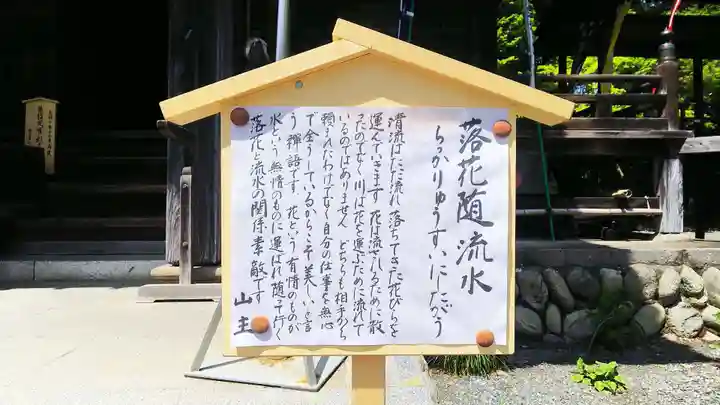 落花随流水
らっかりゅうすいにしたがう
清流はただ流れ 落ちてきた花びらを
運んでいきます 花は流されるために散
ったのでなく 川は花を運ぶために流れて
いるのではありません どちらも相手から
頼まれたわけでなく自分の仕事を無心
で全うしているからこそ美しいと言
う禅語です 花という有情のものが
水という無情のものに運ばれ随って行く
落花と流水の関係素敵です
山主